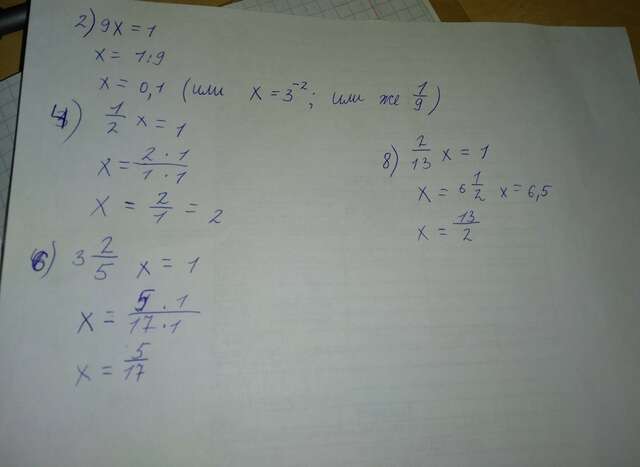 2) 9x = 1
x = 1:9
x = 0,1 (или x = 3⁻²; или же 1/9)
4) 1/2 x = 1
x = 2·1/1·1
x = 2/1 = 2
6) 3 2/5 x = 1
x = 5·1/17·1
x = 5/17
8) 2/13 x = 1
x = 6 1/2 x = 6,5
x = 13/2